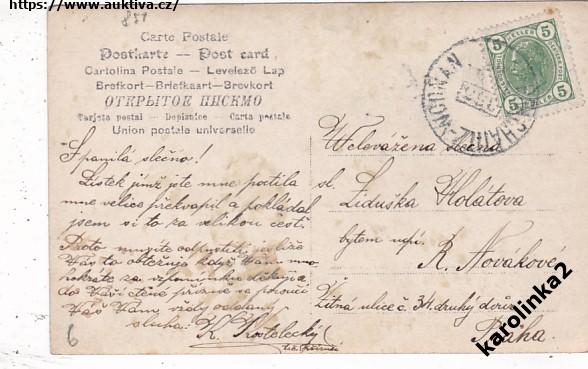 https://www.auktiva.cz/
854
Carte Postale
Postkarte — Post card
Cartolina Postale — Levelező Lap
Brefkort—Briefkaart—Brevkort
ОТКРЫТОЕ ПИСЬМО
Tarjeta postal — Dopisnice — Carta postale
Union postale universelle
5 HELLER 5
5 5
Spanilá slečno!
Lístek jímž jste mne poctila
mne velice překvapil a pokládal
jsem si to za velikou čest.
Proto musíte odpustiti,
Vás to obtěžuji když Vám
za vzpomínku děkuji
do Vaší ctěné přízně se poroučí
Váš Vám vždy oddaný
sluha: K. Kostelecký
Velevážena slečna
sl.
Liduška Kolátova
bytem u pí.
R. Novákové
Žitná ulice č. 34. druhý dvůr
Praha.
6
karolinka2